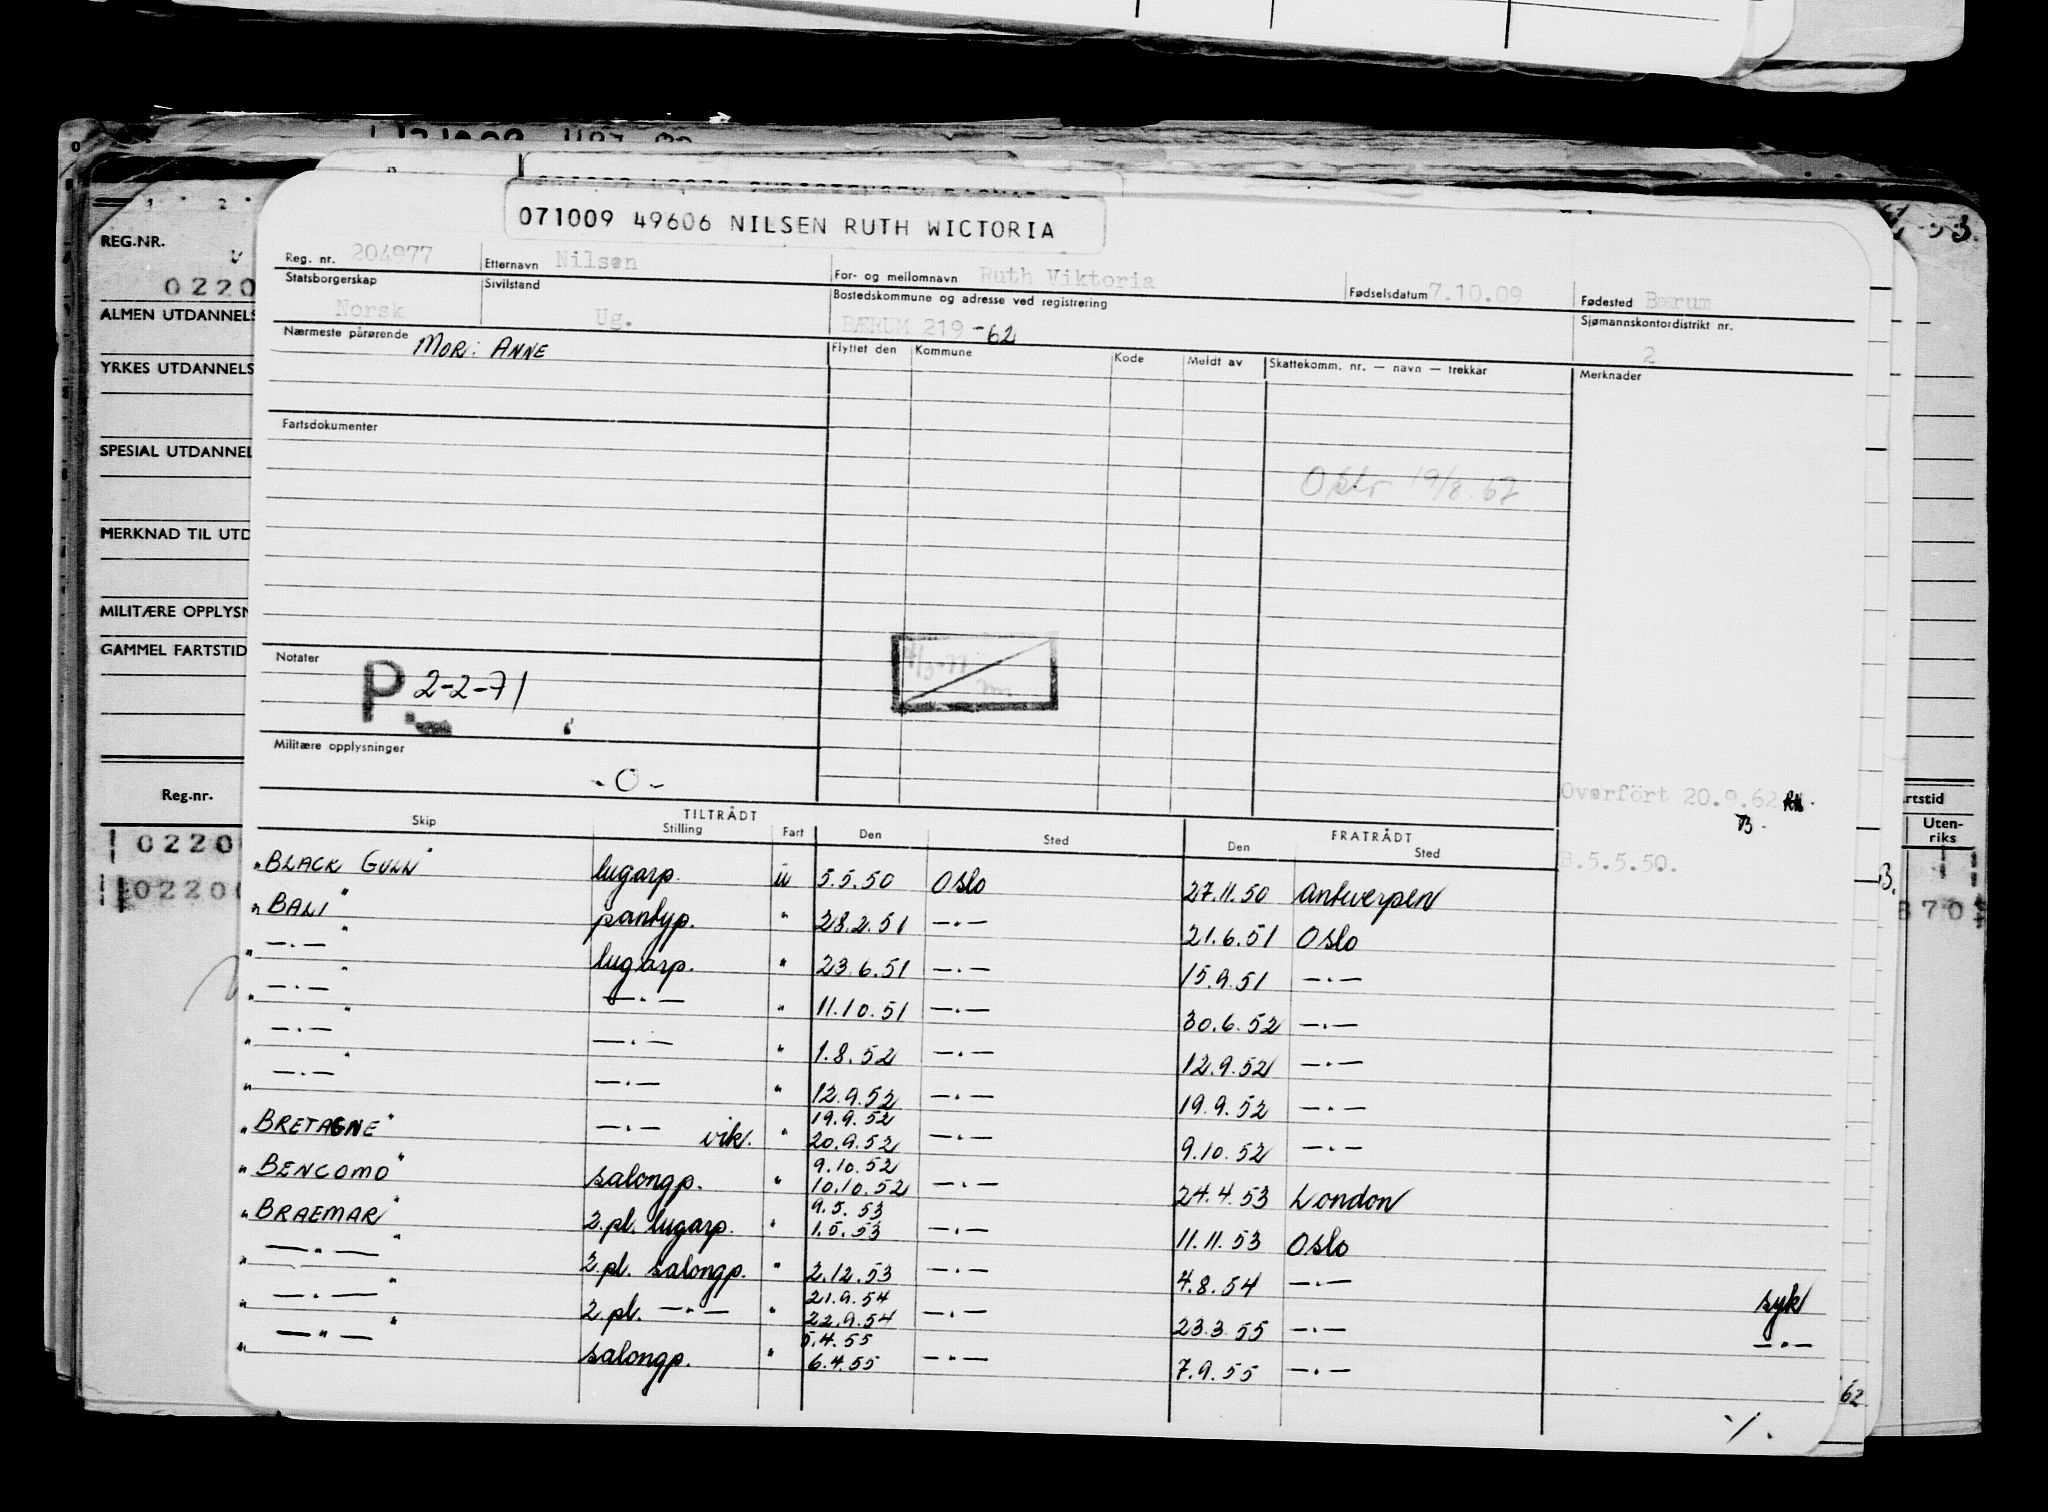 071009 49606 NILSEN RUTH WICTORIA
Reg. nr. 204977 Etternavn Nilsen For- og mellomnavn Ruth Viktoria Fødselsdatum 7.10.09 Fødested Bærum
Statsborgerskap Sivilstand Bostedskommune og adresse ved registrering Sjømannskontordistrikt nr.
Norsk Ug. BÆRUM 219 -62 2
Nærmeste pårørende MOR: ANNE Flyttet den Kommune Kode Meldt av Skattekomm. nr. — navn — trekkår Merknader
Fartsdokumenter
Oslo 19/8.62
Notater
P 2-2-71
Militære opplysninger
- O -
Overført 20.9.62
B.5.5.50.
TILTRÅDT FRATRÅDT
Skip Stilling Fart Den Sted Den Sted
"BLACK GULL" lugarp. u 5.5.50 Oslo 27.11.50 Antwerpen
"BALI" pantryp. " 28.2.51 —.— 21.6.51 Oslo
" —.— " lugarp. " 23.6.51 —.— 15.9.51 —.—
" —.— " —.— " 11.10.51 —.— 30.6.52 —.—
" —.— " —.— " 1.8.52 —.— 12.9.52 —.—
" —.— " —.— " 12.9.52 —.— 19.9.52 —.—
19.9.52
"BRETAGNE" —.— vik. " 20.9.52 —.— 9.10.52 —.—
9.10.52
"BENCOMO" salongp. " 10.10.52 —.— 24.4.53 London
9.5.53
"BRAEMAR" 2.pl. lugarp. " 1.5.53 —.— 11.11.53 Oslo
" —"— " 2.pl. salongp. " 2.12.53 —.— 4.8.54 —.— syk
21.9.54
" —.— " 2.pl. —"— " 22.9.54 —.— 23.3.55 —.— —.—
5.4.55
" —"— " salongp. " 6.4.55 —"— 7.9.55 —.—
·/.
REG.NR.
0220
ALMEN UTDANNELS
YRKES UTDANNELS
SPESIAL UTDANNEL
MERKNAD TIL UTD
MILITÆRE OPPLYSN
GAMMEL FARTSTID
Reg.nr.
0220
02200
rtstid
Uten-
riks
870
62